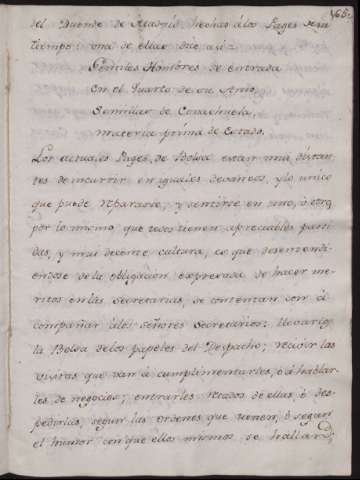 165.
del Duende de Madrid hechas á los Pages de su
tiempo: una de ellas dice así:
Gentiles Hombres de entrada
En el Quarto de su Amo,
Semillar de Covachuela,
materia prima de Estado.
Los actuales Pages, de Bolsa, están mui distan
tes de incurrir en iguales devaneos, y lo unico
que puede repararse, y sentirse en uno, ó otro,
por lo mismo que todos tienen apreciables parti
das, y mui decente cultura, es que desentendi
endose de la obligacion expresada de hacer me
ritos en las Secretarías, se contentan con á
compañar á los señores Secretarios: llevarles
la Bolsa de los papeles del Despacho; recivir las
visitas que van á cumplimentarles, ó á hablar
les de negocios; entrarles recados de ellas, ó des
pedirlas, segun las ordenes que tienen, ó segun
el humor con que ellos mismos se hallan;